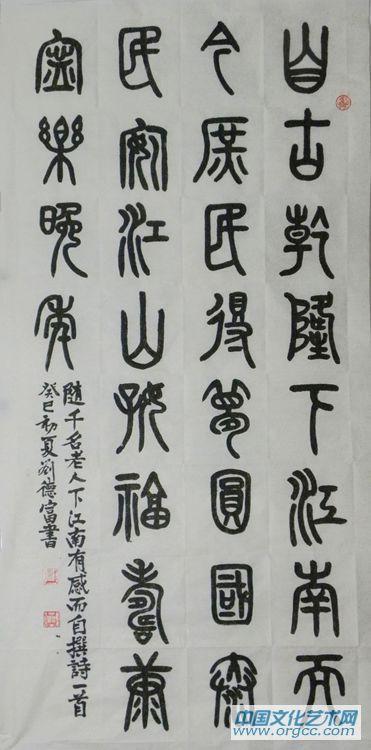 自古乾隆下江南而
今庶民得夢圓國泰
民安江山福壽康
寧樂晚年
隨千名老人下江南有感而自撰詩一首
癸巳初夏劉德富書
中国文化艺术网
www.orgcc.com